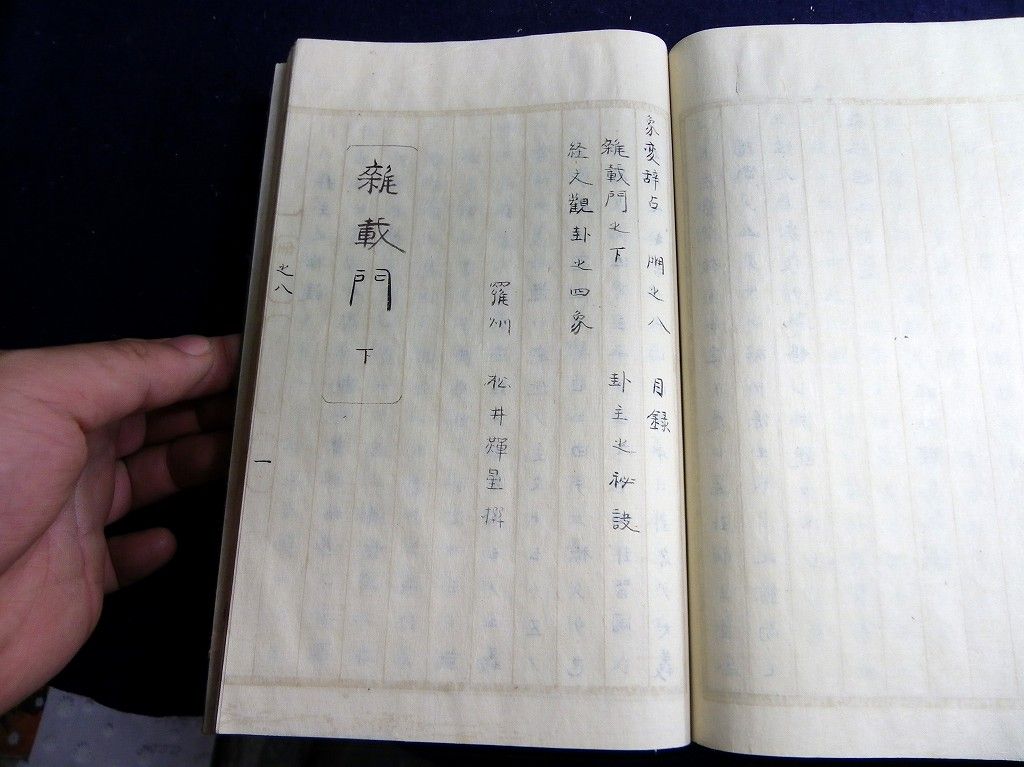 象変辞占 門之八 目録
雜載門之下 卦主之祕訣
経文觀卦之四象
羅州 松井輝星撰
雜載門 下
之八
一